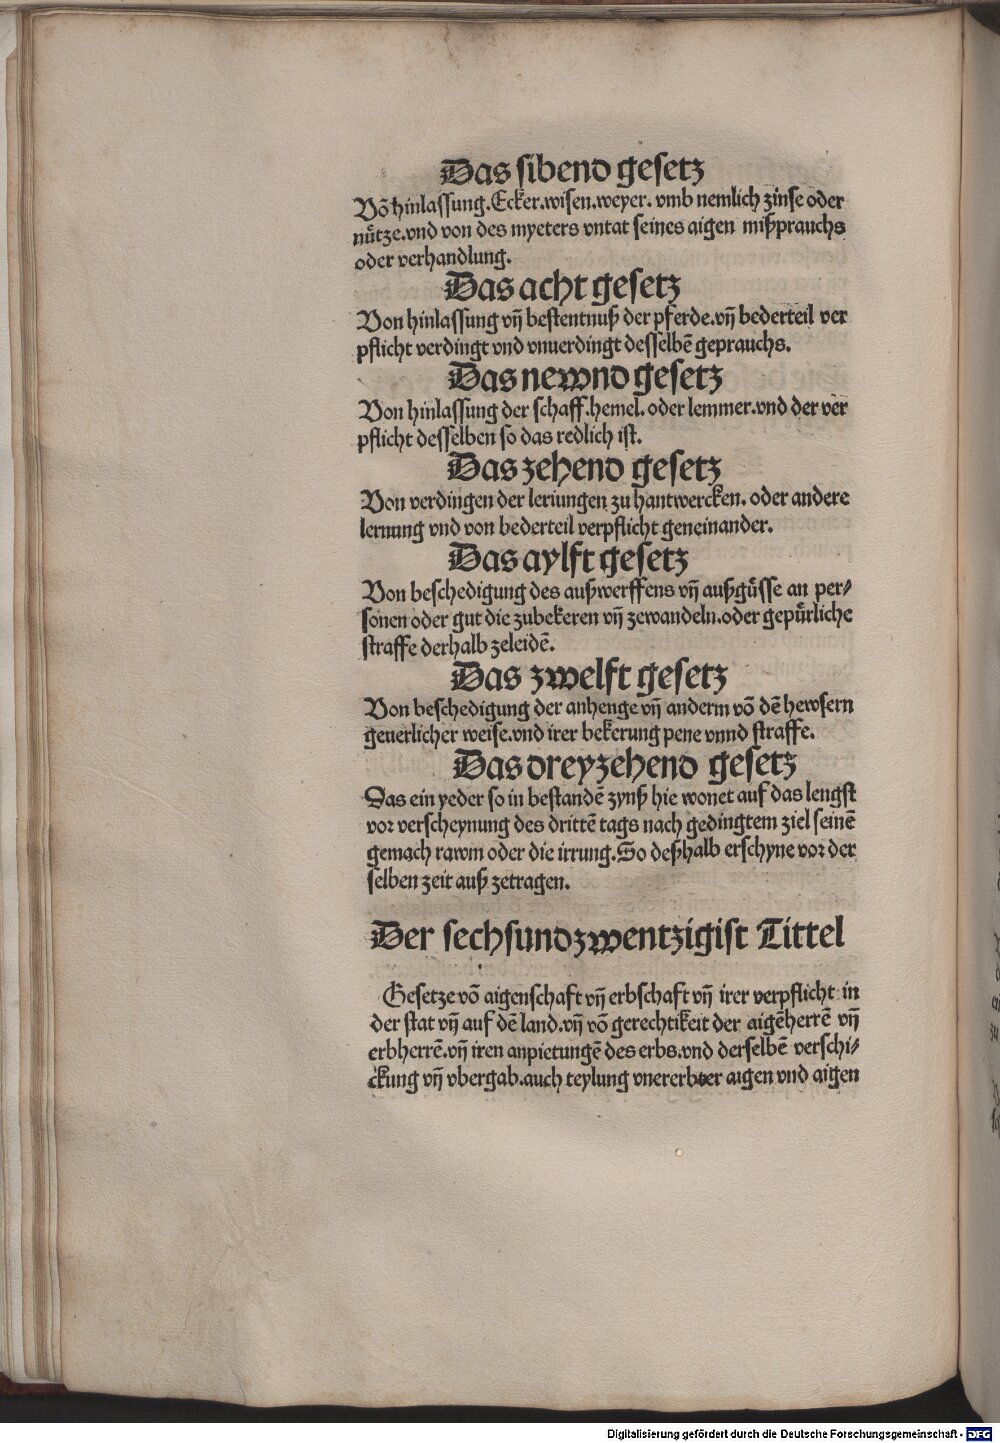 Das sibend gesetz
Võ hinlassung. Ecker. wisen. weyer. vmb nemlich zinse oder
nůtze. vnd von des myeters vntat seines aigen mißprauchs
oder verhandlung.
Das acht gesetz
Von hinlassung vñ bestentnuß der pferde. vñ bederteil ver
pflicht verdingt vnd vnuerdingt desselbẽ geprauchs.
Das newnd gesetz
Von hinlassung der schaff. hemel. oder lemmer. vnd der ver
pflicht desselben so das redlich ist.
Das zehend gesetz
Von verdingen der leriungen zu hantwercken. oder andere
lernung vnd von bederteil verpflicht geneinander.
Das aylft gesetz
Von beschedigung des außwerffens vñ außgůsse an per⸗
sonen oder gut die zubekeren vñ zewandeln. oder gepůrliche
straffe derhalb zeleidẽ.
Das zwelft gesetz
Von beschedigung der anhenge vñ anderm võ dẽ hewsern
geuerlicher weise. vnd irer bekerung pene vnnd straffe.
Das dreyzehend gesetz
Das ein yeder so in bestandẽ zynß hie wonet auf das lengst
vor verscheynung des drittẽ tags nach gedingtem ziel seinẽ
gemach rawm oder die irrung. So deßhalb erschyne vor der
selben zeit auß zetragen.
Der sechsundzwentzigist Tittel
Gesetze võ aigenschaft vñ erbschaft vñ irer verpflicht in
der stat vñ auf dẽ land. vñ võ gerechtikeit der aigẽherrẽ vñ
erbherrẽ. vñ iren anpietungẽ des erbs. vnd derselbẽ verschi⸗
ckung vñ vbergab. auch teylung vnererbter aigen vnd aigen
Digitalisierung gefördert durch die Deutsche Forschungsgemeinschaft - DFG